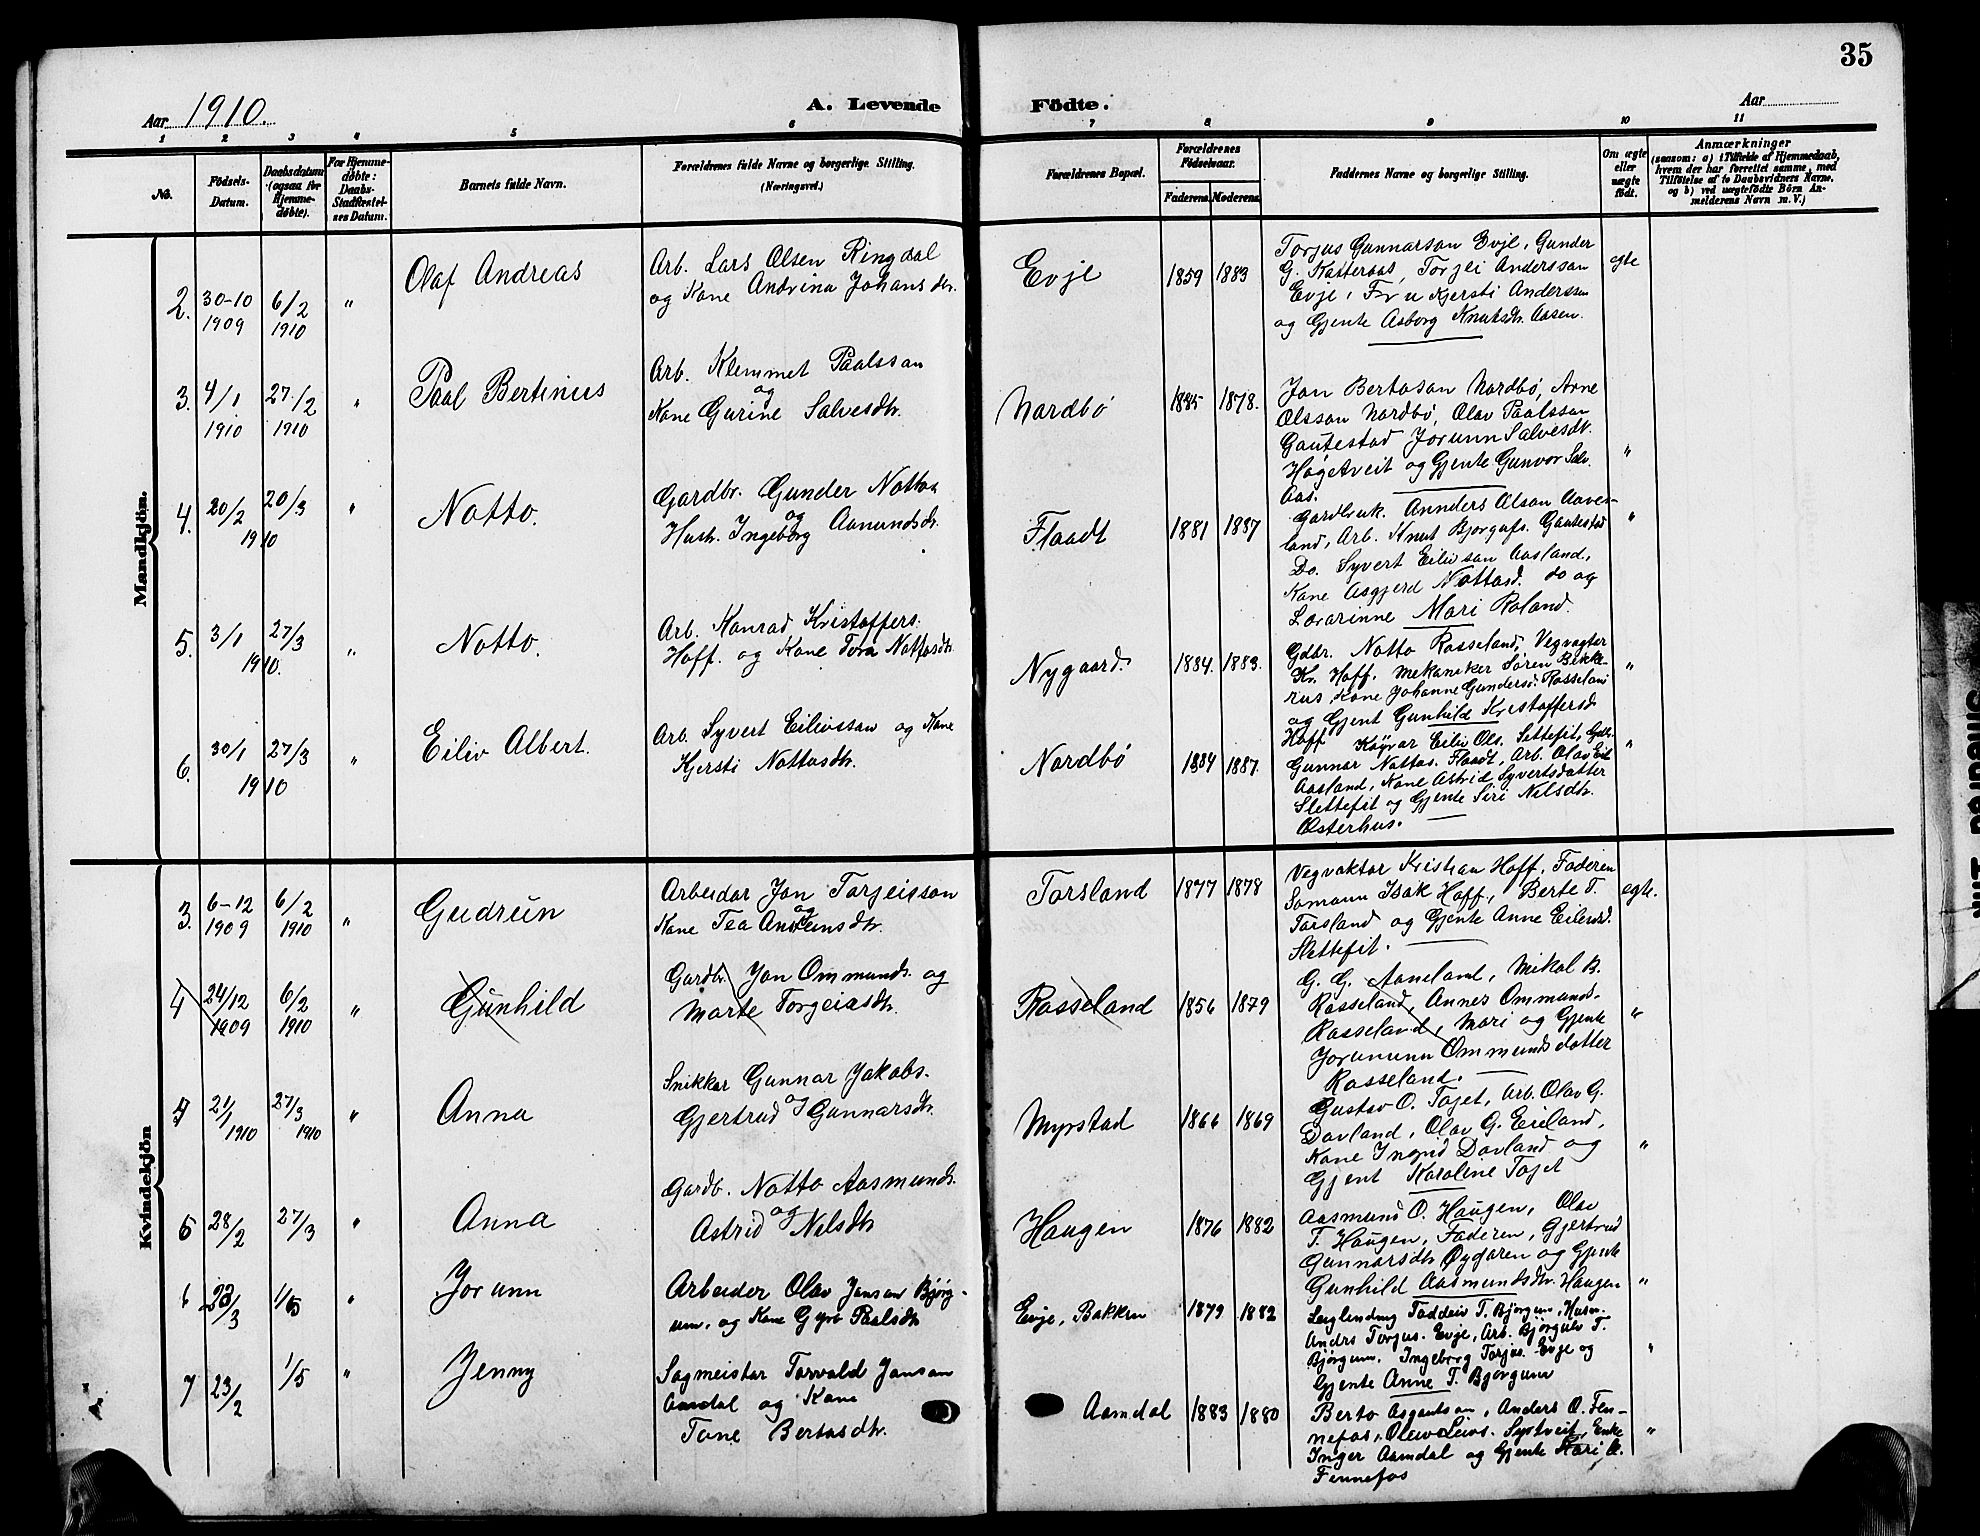 35
Aar 1910.
A. Levende Födte.
Aar
1 2 3 4 5 6 7 8 9 10 11
No.
Födsels-Datum.
Daabsdatum (ogsaa for Hjemme-døbte).
For Hjemme-døbte: Daabs-Stadfæstel-ses Datum.
Barnets fulde Navn.
Forældrenes fulde Navne og borgerlige Stilling. (Næringsvei.)
Forældrenes Bopæl.
Forældrenes Födselsaar.
Faderens. Moderens.
Faddernes Navne og borgerlige Stilling.
Om ægte eller uægte födt.
Anmærkninger
(saasom: a) i Tilfælde af Hjemmedaab, hvem der har forrettet samme, med Tilföielse af to Daabsvidners Navne. og b) ved uægtefödte Börn An-melderens Navn m. V.)
Mandkjön.
2. 30-10 1909 6/2 1910 " Olaf Andreas
Arb. Lars Olsen Ringdal
og Kone Andrina Johansdtr.
Evje 1859 1883
Torjus Gunnarson Evje, Gunder
G. Katteraas, Torjei Anderssan
Evje, Fru Kjersti Anderssen
og Gjente Asborg Knutsdtr. Aasen.
egte
3. 4/1 1910 27/2 1910 " Paal Bertinius
Arb. Klemmet Paalssan
og
Kone Gurine Salvesdtr.
Nordbø 1885 1878.
Jon Bertosan Nordbø, Arne
Olsson Nordbø, Olav Paalssan
Gautestad Jorunn Salvesdtr.
Høgetveit og Gjente Gunvor Salv.
Aas.
"
4. 20/2 20/3 1910 " Notto.
Gardbr. Gunder Nottos
og
Hustr. Ingeborg Aamundsdtr.
Flaadt 1881 1887
Gardbruk. Annders Olsan Aaves-
land, Arb. Knut Bjorgufs. Gautestad
Do. Syvert Eilivsan Aasland,
Kone Asgjerd Nottosd. do og
Lærarinne Mari Roland.
"
5. 3/1 27/3 1910. " Notto.
Arb. Konrad Kristoffers.
Hoff. og Kone Tora Nottosdtr.
Nygaard. 1884. 1883.
Gdbr. Notto Rosseland, Vegvagter
Kr. Hoff, Mekaneker Søren Bekke-
rus, Kone Johanne Gundersd. Rosseland
og Gjent Gunhild Kristoffersd.
Hoff
"
6. 30/1 27/3 1910 " Eiliv Albert.
Arb. Syvert Eilivssan og Kone
Kjersti Nottosdtr.
Nordbø 1884 1887.
Eiliv Ols. Slettefit, Gdbr.
Gunnar Nottos. Flaadt, Arb. Olav Eil.
Aasland, Kone Astrid Syvertsdatter
Slettefit og Gjente Siri Nilsdtr.
Østerhus.
"
Kvindekjön
3. 6-12 1909 6/2 1910 " Gudrun
Arbeidar Jon Torjeisson
og
Kone Tea
Torsland 1877 1878
Vegvaktar Kristian Hoff, Faderen
Somann Isak Hoff, Berte T.
Torsland og Gjente Anne Eilivsd.
Slettefit.
egte.
4 24/12 1909 6/2 1910 " Gunhild
Gardb. Jon Ommunds. og
Marte Torgeiasdtr.
Rosseland 1856 1879
G. G. Aaneland, Mikal B.
Rosseland, Annes Ommunds.
Rosseland, Mari og Gjente
Jorunnun Ommundsdatter
Rosseland.
"
4 21/1 1910 27/3 1910 " Anna
Snikkar Gunnar Jakobs.
og
Gjertrud Gunnarsdtr.
Myrstad 1866 1869
Gustav O. Tojet, Arb. Olav G.
Dovland, Olav G. Eieland,
Kone Ingrid Dovland og
Gjent Karoline Tojet
"
5 28/2 27/3 " Anna
Gardb. Notto Aasmunds.
og
Astrid Nilsdtr
Haugen 1876 1882
Aasmund O. Haugen, Olav
T. Haugen, Faderen, Gjertrud
Gunnarsdtr. Øygaren og Gjente
Gunhild Aasmundsdtr. Haugen
"
6 23/3 1/5 " Jorunn
Arbeider Olav Jonsen Bjørg-
um, og Kone Gyro Paalsdtr
Evje, Bakken 1879 1882
Leiglending Taddeiv T. Bjørgum, Husm.
Andrs Torgus. Evje, Arb. Bjørgulv T.
Bjørgum, Ingeborg Torjus. Evje og
Gjente Anne T. Bjørgum
"
7 23/2 1/5 " Jenny
Sagmeister Torvald Jonsan
Aamdal og Kone
Tone Bertosdtr.
Aamdal 1883 1880
Berto Asgautsan, Anders O. Fen-
nefos, Syrtveit, Enke
Inger Aamdal og Gjente Kari O.
Fennefos
"